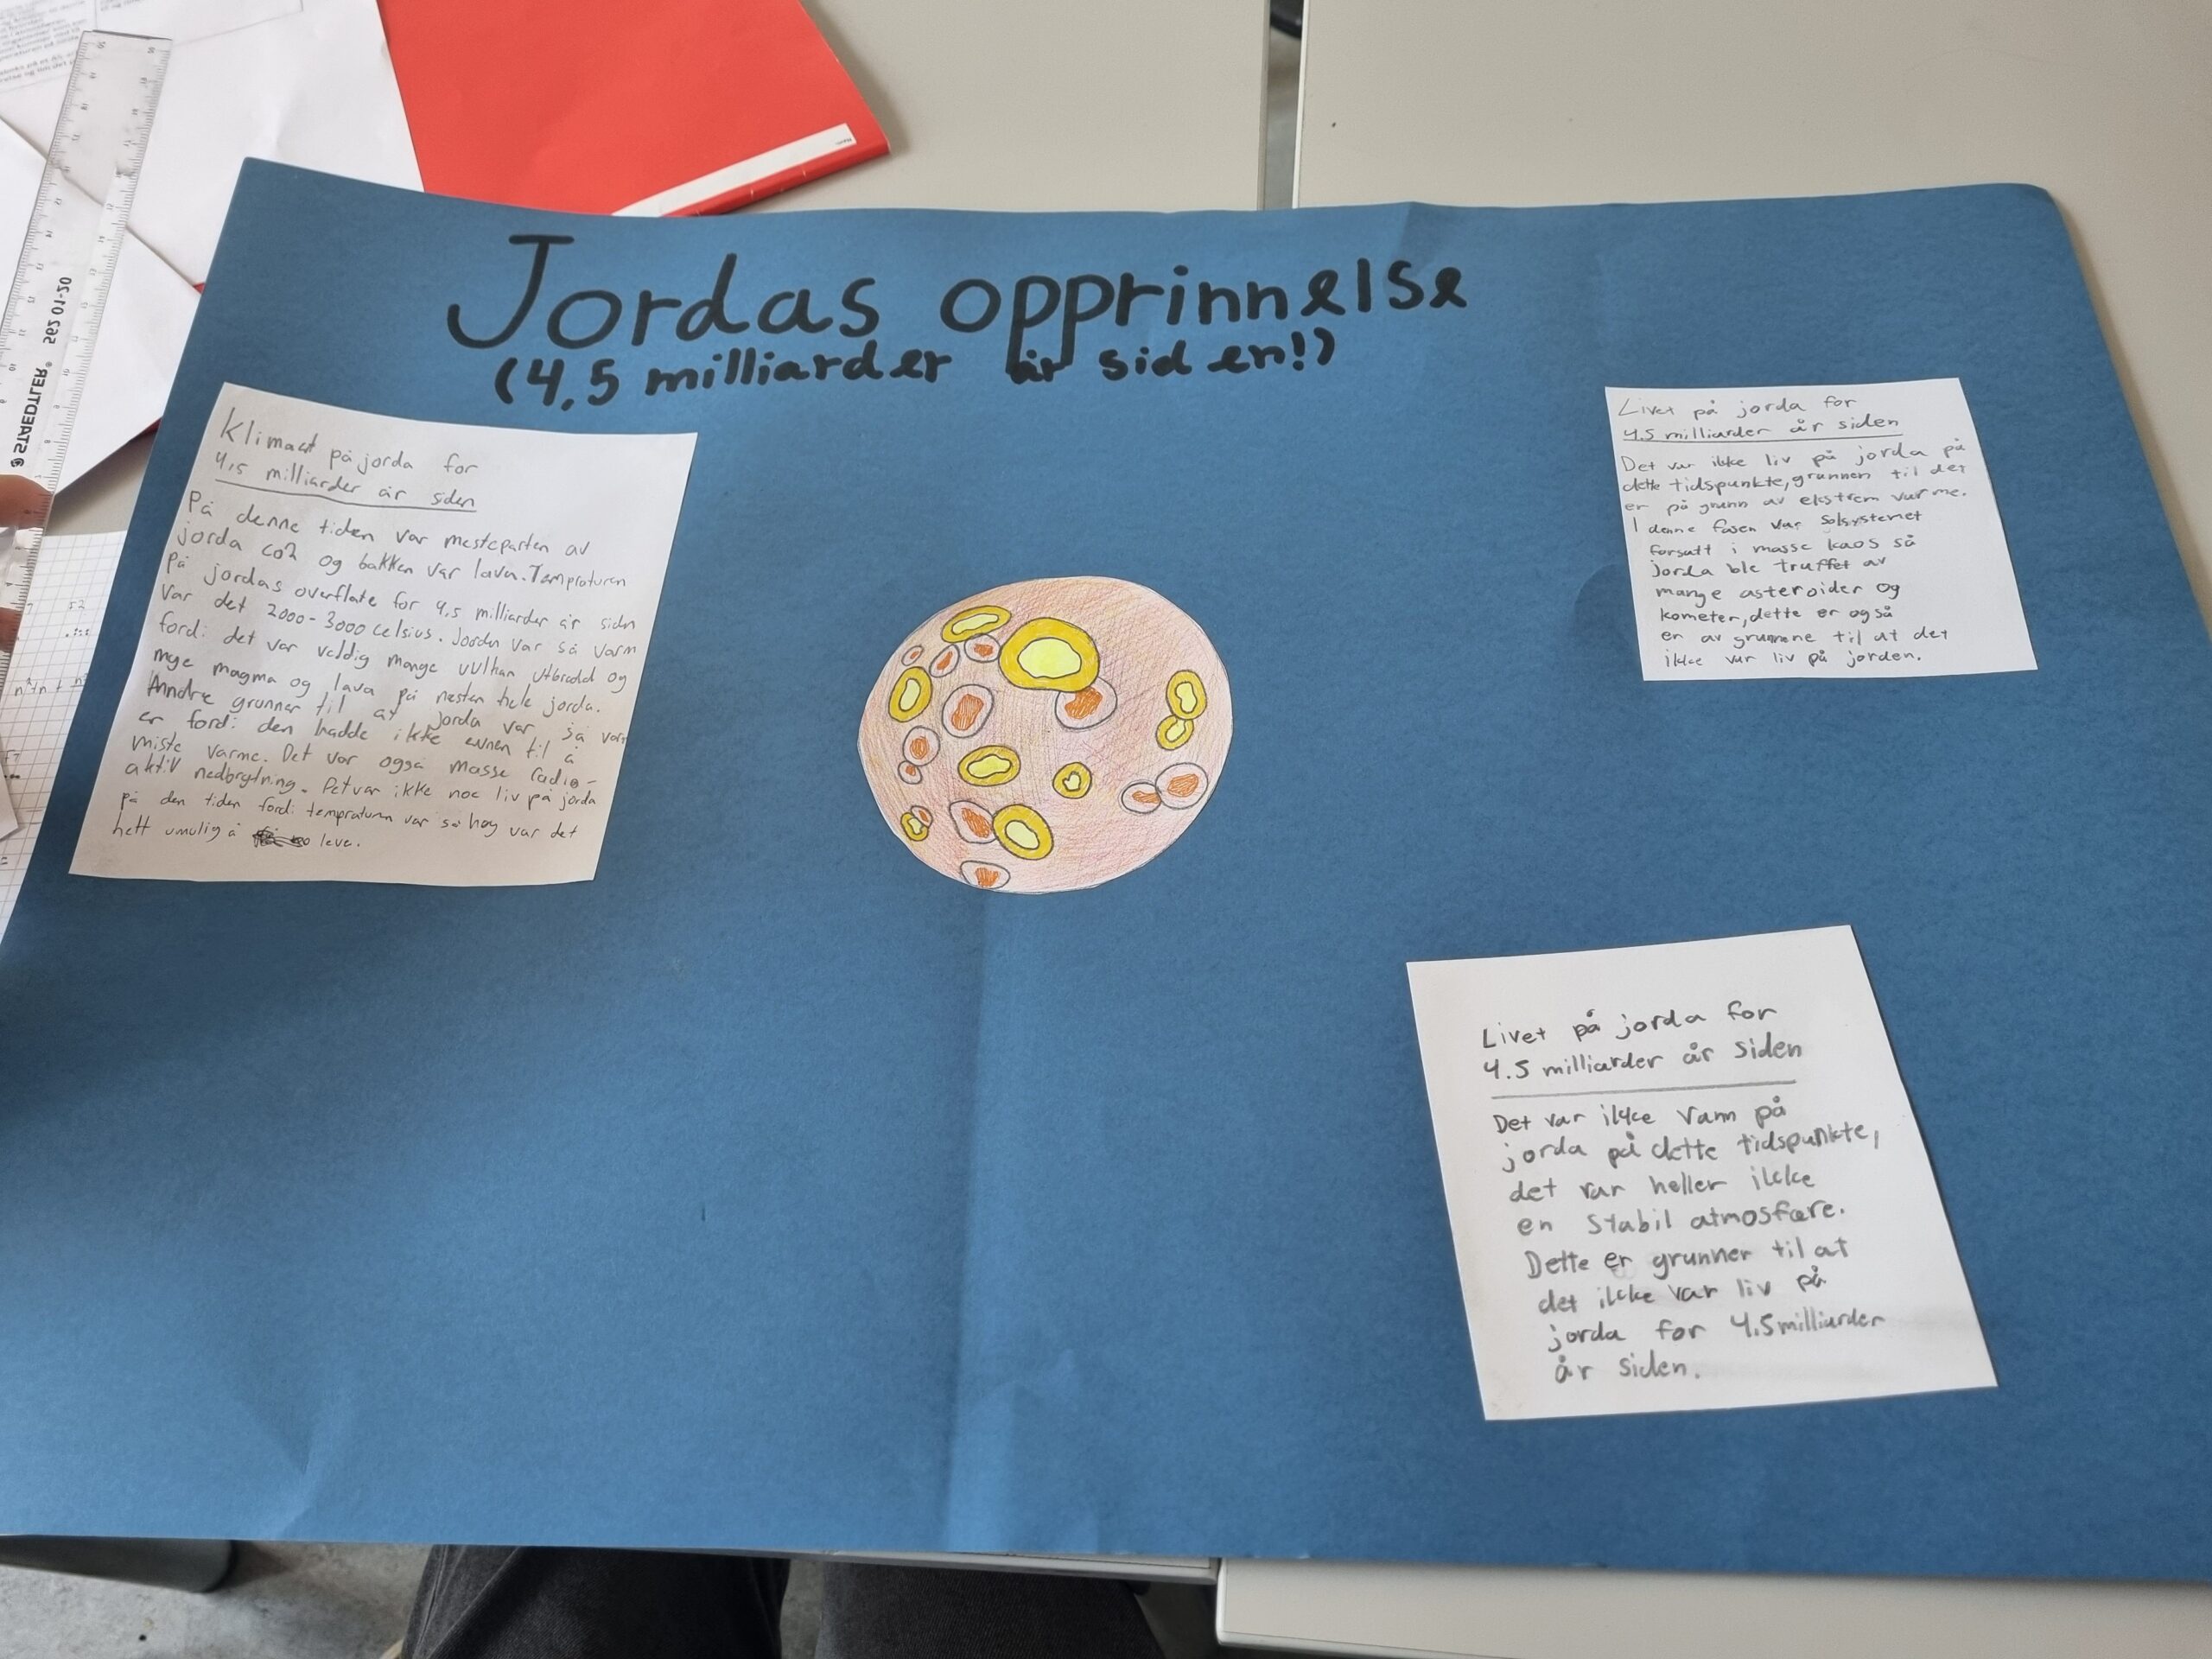 Jordas opprinnelse
(4,5 milliarder år siden!)
Klimaet på jorda for
4,5 milliarder år siden
På denne tiden var mesteparten av
jorda co2 og bakken var lava. Tempraturen
på jordas overflate for 4,5 milliarder år siden
var det 2000-3000 celsius. Jorden var så varm
fordi det var veldig mange vulkan utbrudd og
mye magma og lava på nesten hele jorda.
Andre grunner til at jorda var så varm
er fordi den hadde ikke evnen til å
miste varme. Det var også masse radio-
aktiv nedbrytning. Det var ikke noe liv på jorda
på den tiden fordi tempraturen var så høy var det
helt umulig å leve.
Livet på jorda for
4.5 milliarder år siden
Det var ikke liv på jorda på
dette tidspunkte, grunnen til det
er på grunn av ekstrem varme.
I denne fasen var solsystemet
forsatt i masse kaos så
jorda ble truffet av
mange asteroider og
kometer, dette er også
en av grunnene til at det
ikke var liv på jorden.
Livet på jorda for
4.5 milliarder år siden
Det var ikke vann på
jorda på dette tidspunkte,
det var heller ikke
en stabil atmosfære.
Dette er grunner til at
det ikke var liv på
jorda for 4.5 milliarder
år siden.
STAEDTLER® 562 01-20